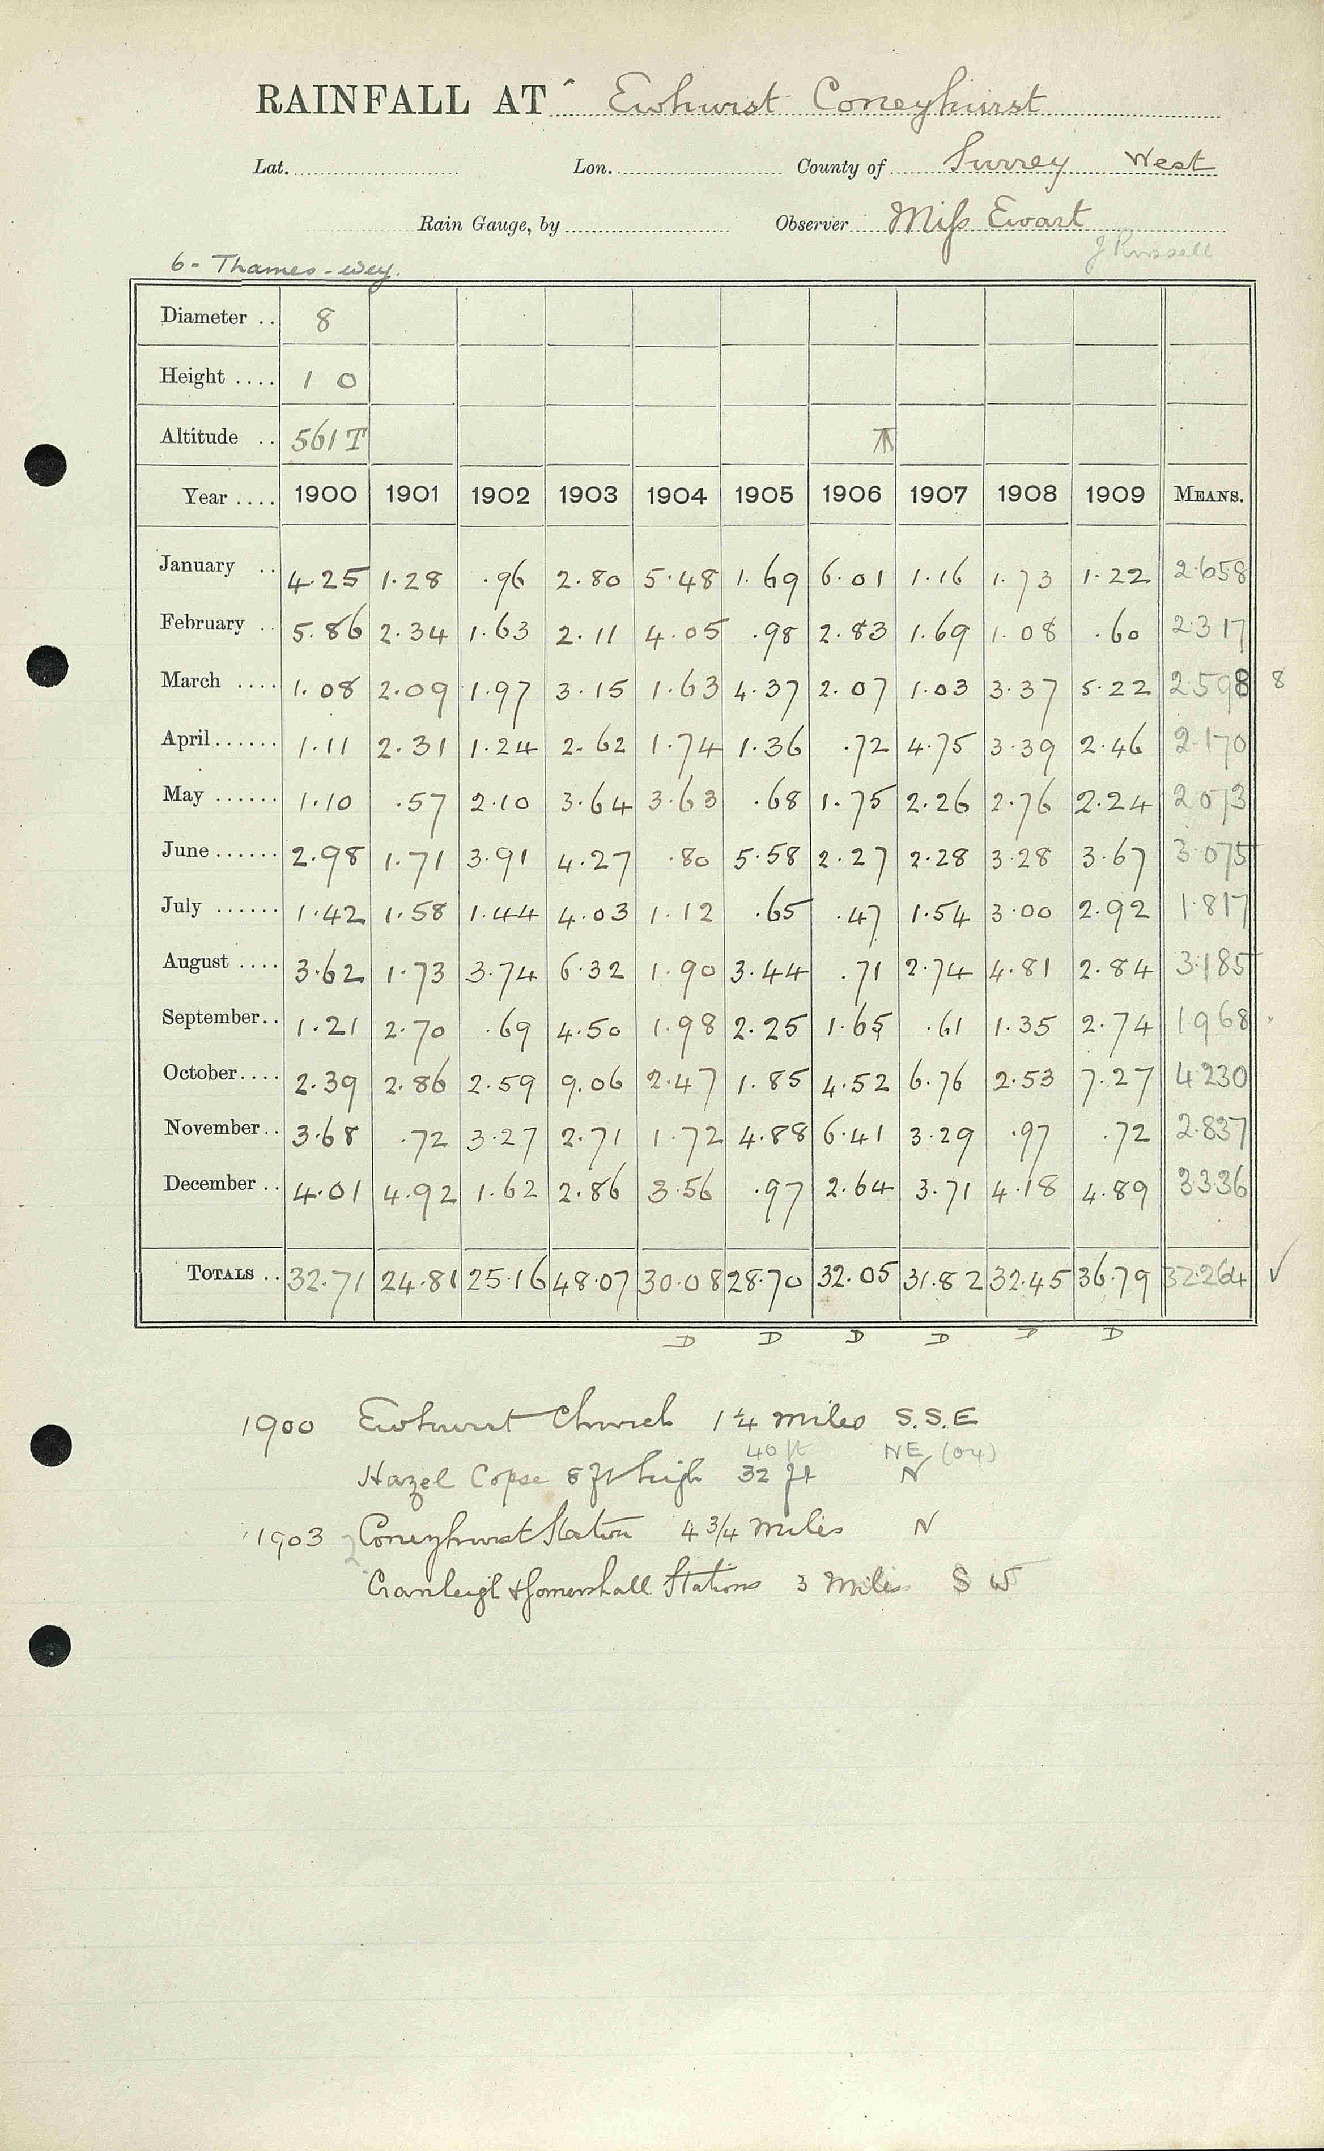 RAINFALL AT Ewhurst Coneyhurst
Lat. Lon. County of Surrey West
Rain Gauge, by Observer Miss Ewart
J Russell
6 - Thames - Wey.
Diameter .. 8
Height .... 1 0
Altitude .. 561 T
Year .... 1900 1901 1902 1903 1904 1905 1906 1907 1908 1909 MEANS.
January .. 4.25 1.28 .96 2.80 5.48 1.69 6.01 1.16 1.73 1.22 2.658
February .. 5.86 2.34 1.63 2.11 4.05 .98 2.83 1.69 1.08 .60 2.317
March .... 1.08 2.09 1.97 3.15 1.63 4.37 2.07 1.03 3.37 5.22 2.598 8
April...... 1.11 2.31 1.24 2.62 1.74 1.36 .72 4.75 3.39 2.46 2.170
May ...... 1.10 .57 2.10 3.64 3.63 .68 1.75 2.26 2.76 2.24 2.073
June...... 2.98 1.71 3.91 4.27 .80 5.58 2.27 2.28 3.28 3.67 3.075
July ...... 1.42 1.58 1.44 4.03 1.12 .65 .47 1.54 3.00 2.92 1.817
August .... 3.62 1.73 3.74 6.32 1.90 3.44 .71 2.74 4.81 2.84 3.185
September.. 1.21 2.70 .69 4.50 1.98 2.25 1.65 .61 1.35 2.74 1968
October.... 2.39 2.86 2.59 9.06 2.47 1.85 4.52 6.76 2.53 7.27 4.230
November.. 3.68 .72 3.27 2.71 1.72 4.88 6.41 3.29 .97 .72 2.837
December .. 4.01 4.92 1.62 2.86 3.56 .97 2.64 3.71 4.18 4.89 3336
TOTALS .. 32.71 24.81 25.16 48.07 30.08 28.70 32.05 31.82 32.45 36.79 32264 ✓
D D D D D D
1900 Ewhurst Church 1¼ miles S.S.E
40 ft NE (04)
Hazel Copse 8 ft high 32 ft N
1903 Coneyhurst Station 4 3/4 miles N
Cranleigh & Gomershall Stations 3 Miles S W